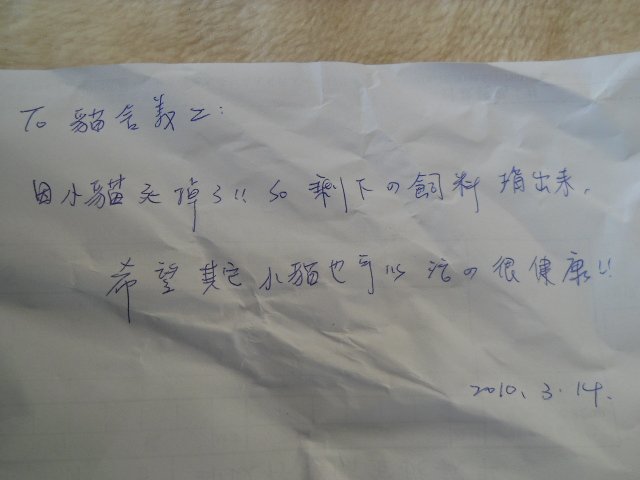 To 貓舍義工:
因小貓夭掉了!! So 剩下の飼料捐出來.
希望其它小貓也可以活の很健康!!
2010. 3. 14.